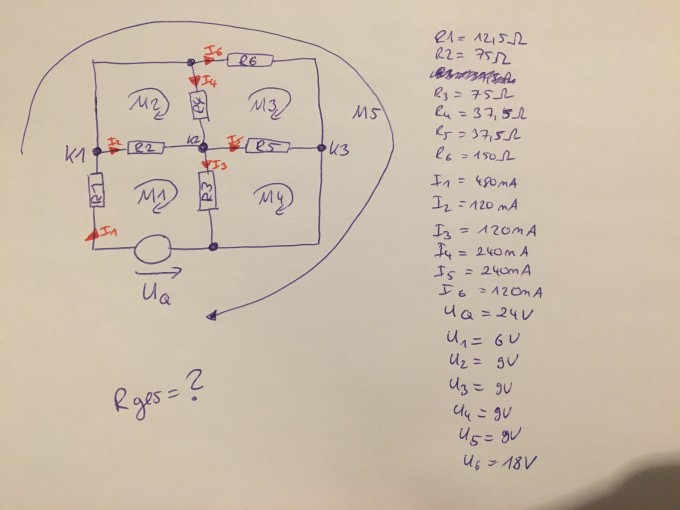 I6
R6
I4
M2
R4
M3
M5
K1
I2
R2
K2
I5
R5
K3
I3
R1
M1
R3
M4
I1
UQ
Rges = ?
R1 = 12,5Ω
R2 = 75Ω
R3 = 75Ω
R4 = 37,5Ω
R5 = 37,5Ω
R6 = 150Ω
I1 = 480mA
I2 = 120mA
I3 = 120mA
I4 = 240mA
I5 = 240mA
I6 = 120mA
UQ = 24V
U1 = 6V
U2 = 9V
U3 = 9V
U4 = 9V
U5 = 9V
U6 = 18V